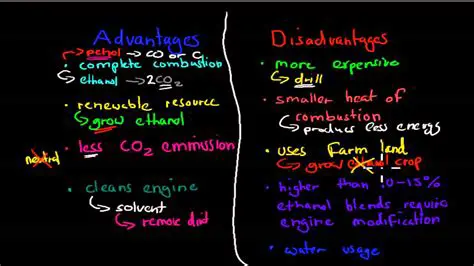 Advantages
petrol → CO or C
• complete combustion
ethanol → 2CO2
• renewable resource
grow ethanol
• less CO2 emmission
neutral
• cleans engine
solvent
remove dirt
Disadvantages
• more expensive
drill
• smaller heat of
combustion
produces less energy
• uses Farm land
grow ethanol crop
• higher than 10-15%
ethanol blends require
engine modification
• water usage